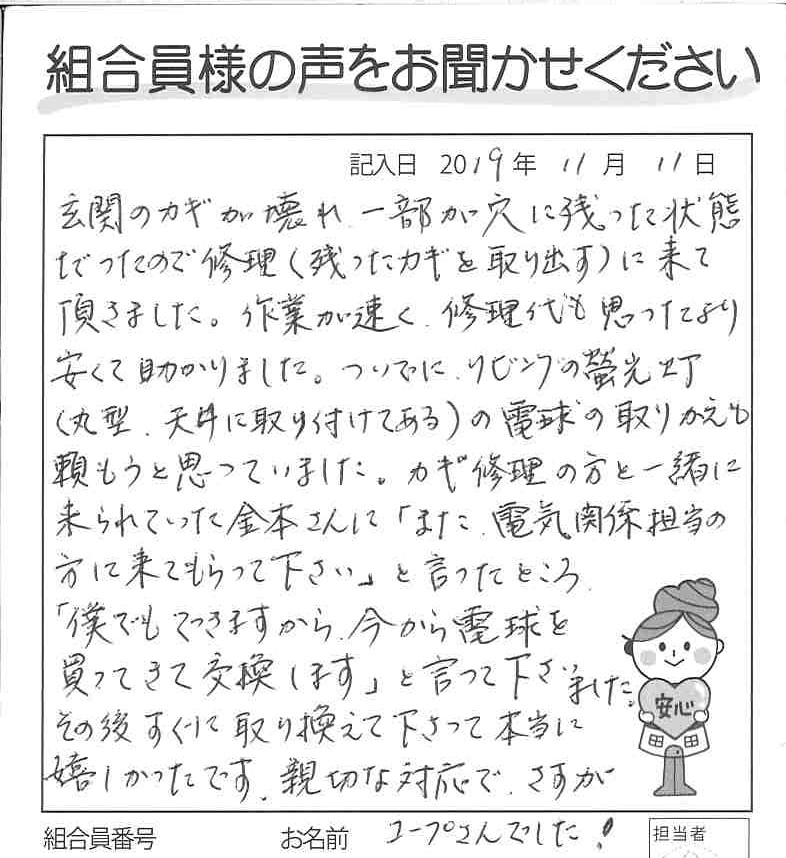 組合員様の声をお聞かせください
記入日 2019年 11月 11日
玄関のカギが壊れ、一部が穴に残った状態
だったので修理(残ったカギを取り出す)に来て
頂きました。作業が速く、修理代も思ったより
安くて助かりました。ついでに、リビングの螢光灯
(丸型、天井に取り付けてある)の電球の取りかえも
頼もうと思っていました。カギ修理の方と一緒に
来られていた金本さんに「また、電気関係担当の
方に来てもらって下さい」と言ったところ、
「僕でもできますから、今から電球を
買ってきて交換します」と言って下さいました。
その後すぐに取り換えて下さって本当に
嬉しかったです。親切な対応で、さすが
コープさんでした!
安心
組合員番号 お名前 担当者